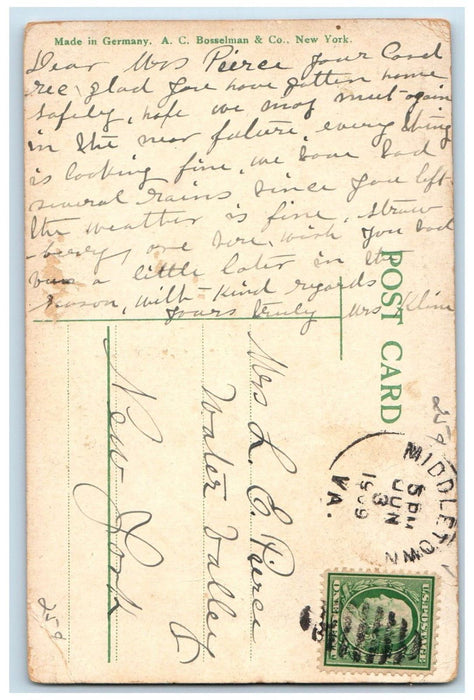 Made in Germany. A. C. Bosselman & Co., New York.
Dear Mrs Peirce your Card
rec, glad you have gotten home
safely, hope we may meet again
in the near future, every thing
is looking fine, we have had
several rains since you left
the weather is fine, straw
-berry, are here, wish you had
been a little later in the
season, with kind regards
yours truly Mrs Kline
POST CARD
Mrs L. E. Pierce
Water Valley
New York
259
MIDDLETOWN
5 PM
JUN
3
1909
VA.
U.S. POSTAGE
ONE CENT
259